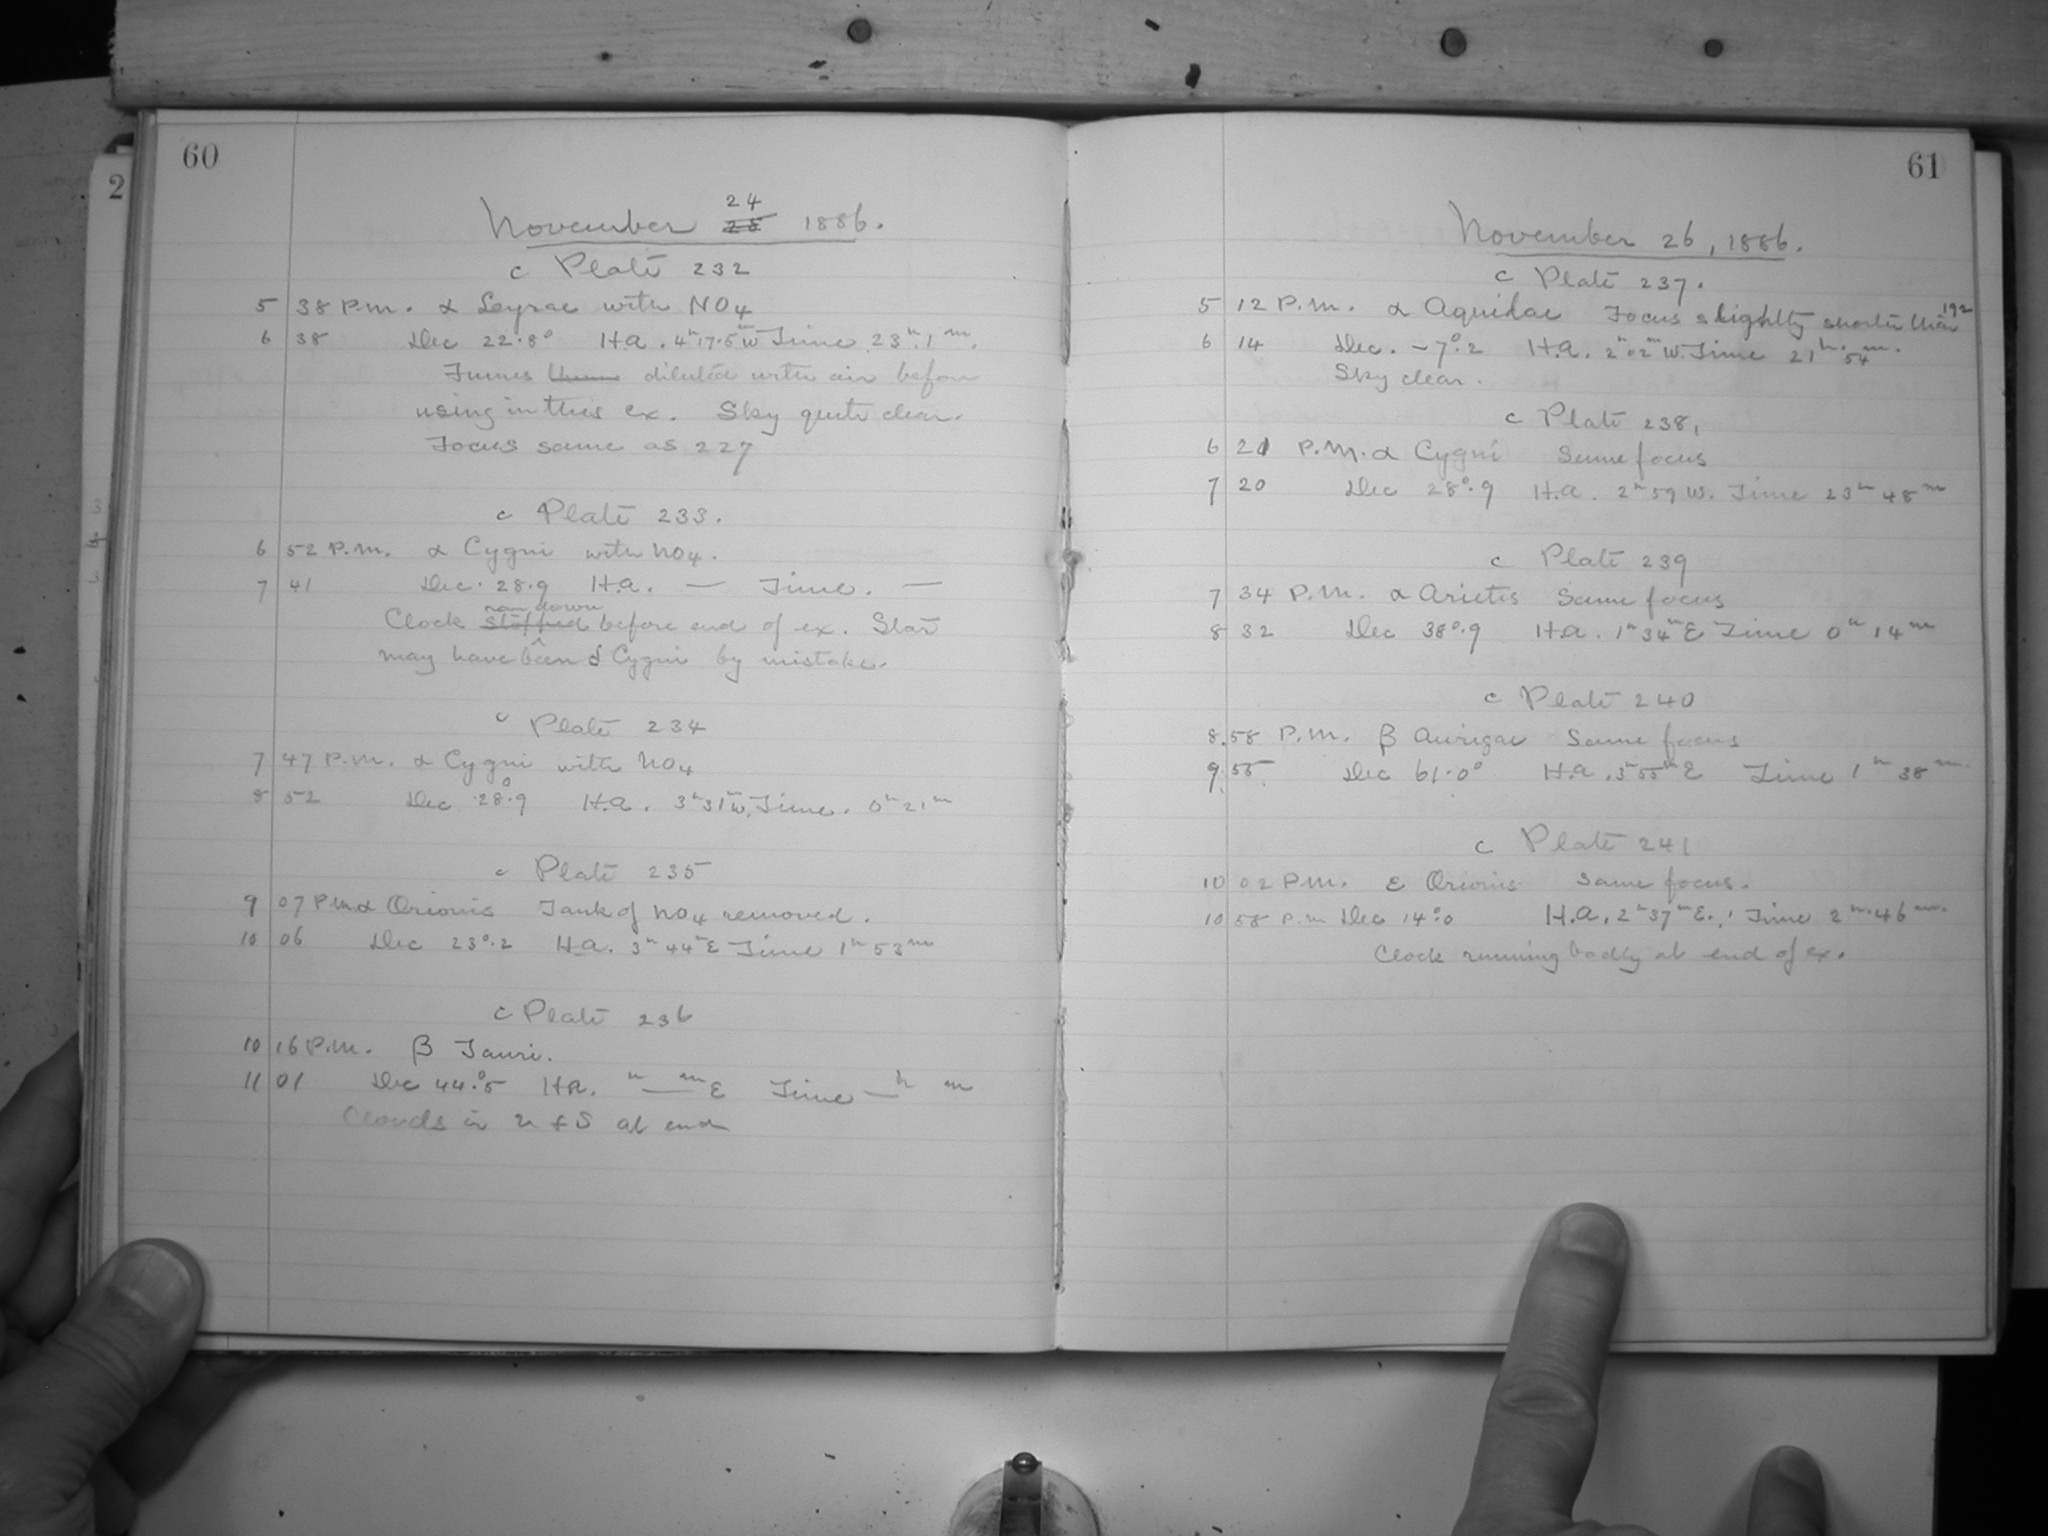 60
2
November 24 1886.
c Plate 232
5 38 P.M. α Leyrae with NO4
6 38 Dec 22.8° H.a. 4h 17.5m W Time 23h 1m.
Fumes diluted with air before
using in this ex. Sky quite clear.
Focus same as 227
c Plate 233.
6 52 P.M. α Cygni with NO4.
7 41 Dec. 28.9 H.a. — Time. —
Clock ran down before end of ex. Star
may have been δ Cygni by mistake.
c Plate 234
7 47 P.M. α Cygni with NO4
8 52 Dec 28°.9 H.a. 3h 31m W. Time. 0h 21m
c Plate 235
9 07 P.M. α Orionis Tank of NO4 removed.
10 06 Dec 23°.2 H.a. 3h 44m E Time 1h 53m
c Plate 236
10 16 P.M. β Tauri.
11 01 Dec 44°.5 H.a. h — m E Time — h m
Clouds in N & S at end
61
November 26, 1886.
c Plate 237.
5 12 P.M. α Aquilae Focus slightly shorter than 192
6 14 Dec. -7°.2 H.a. 2h 02m W. Time 21h 54m.
Sky clear.
c Plate 238.
6 21 P.M. α Cygni Same focus
7 20 Dec 28°.9 H.a. 2h 59 W. Time 23h 48m
c Plate 239
7 34 P.M. α Arietis Same focus
8 32 Dec 38°.9 H.a. 1h 34m E Time 0h 14m
c Plate 240
8.58 P.M. β Aurigae Same focus
9 55 Dec 61.0° H.a. 3h 55m E Time 1h 38m
c Plate 241
10 02 P.M. ε Orionis Same focus.
10 58 P.M. Dec 14°.0 H.a. 2h 37m E. Time 2h 46m.
Clock running badly at end of ex.